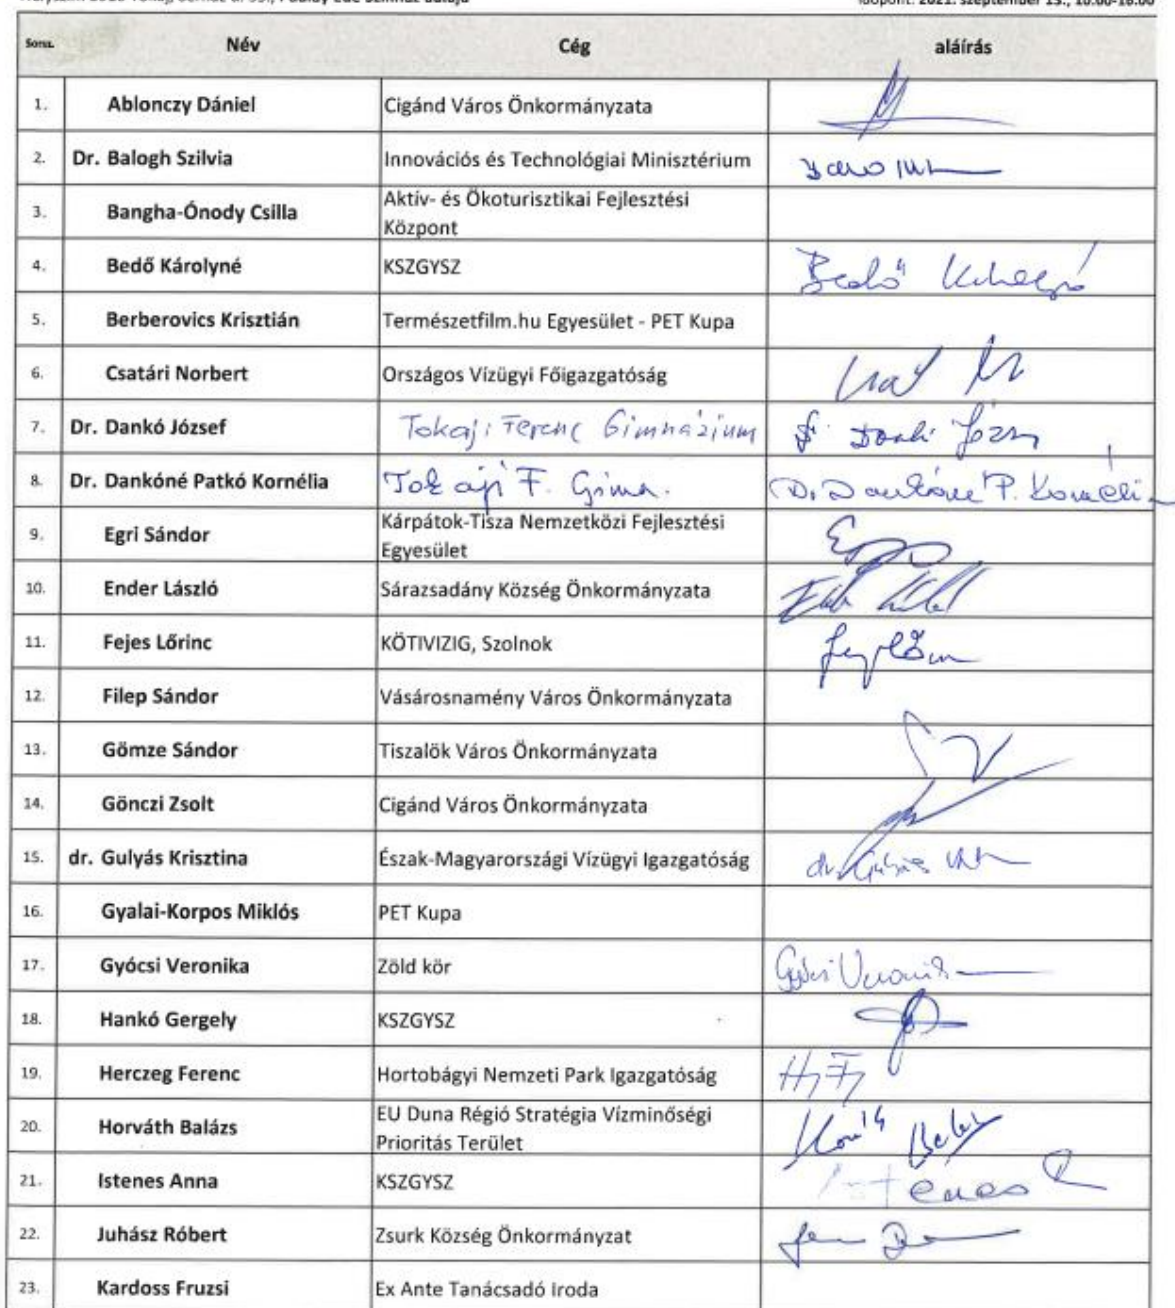 Időpont: 2021. szeptember 15., 10.00-16.00
Sorsz. Név Cég aláírás
1. Ablonczy Dániel Cigánd Város Önkormányzata
2. Dr. Balogh Szilvia Innovációs és Technológiai Minisztérium
3. Bangha-Ónody Csilla Aktív- és Ökoturisztikai Fejlesztési
Központ
4. Bedő Károlyné KSZGYSZ Bedő
5. Berberovics Krisztián Természetfilm.hu Egyesület - PET Kupa
6. Csatári Norbert Országos Vízügyi Főigazgatóság
7. Dr. Dankó József Tokaji Ferenc Gimnázium
8. Dr. Dankóné Patkó Kornélia Tokaji F. Gimn. Dr Dankóné P. Kornélia
9. Egri Sándor Kárpátok-Tisza Nemzetközi Fejlesztési
Egyesület
10. Ender László Sárazsadány Község Önkormányzata
11. Fejes Lőrinc KÖTIVIZIG, Szolnok
12. Filep Sándor Vásárosnamény Város Önkormányzata
13. Gömze Sándor Tiszalök Város Önkormányzata
14. Gönczi Zsolt Cigánd Város Önkormányzata
15. dr. Gulyás Krisztina Észak-Magyarországi Vízügyi Igazgatóság
16. Gyalai-Korpos Miklós PET Kupa
17. Gyócsi Veronika Zöld kör Gyócsi Veronika
18. Hankó Gergely KSZGYSZ
19. Herczeg Ferenc Hortobágyi Nemzeti Park Igazgatóság
20. Horváth Balázs EU Duna Régió Stratégia Vízminőségi
Prioritás Terület
21. Istenes Anna KSZGYSZ Istenes
22. Juhász Róbert Zsurk Község Önkormányzat
23. Kardoss Fruzsi Ex Ante Tanácsadó Iroda